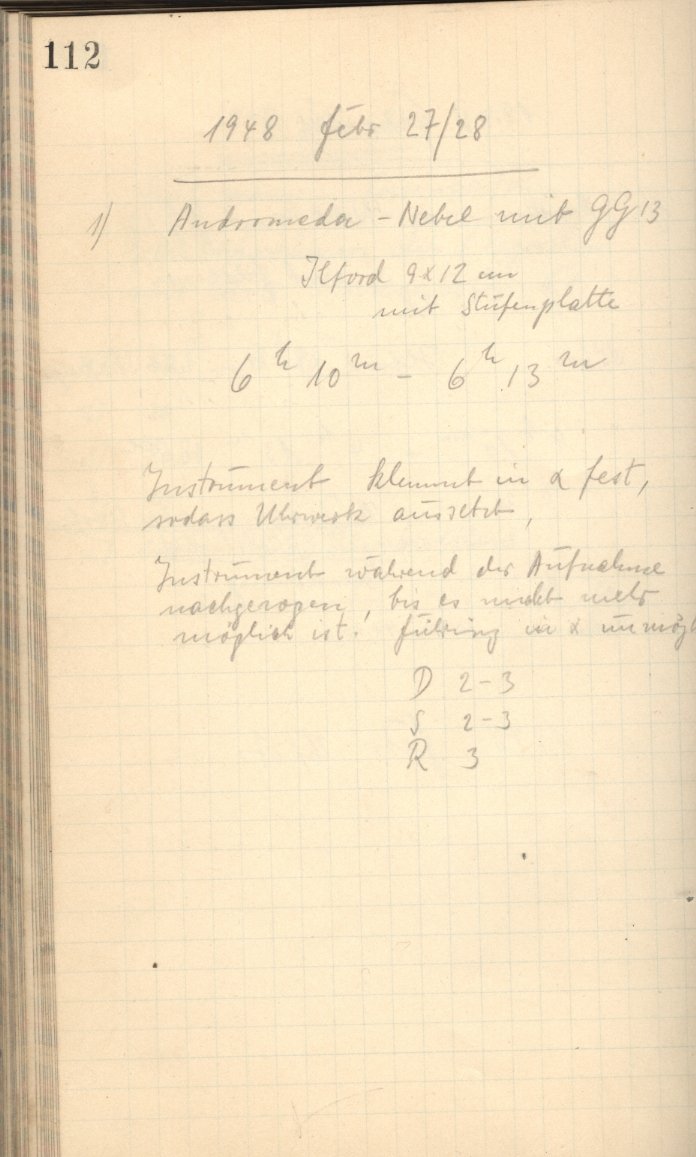 112
1948 Febr 27/28
1) Andromeda - Nebel mit GG 13
Ilford 9x12 cm
mit Stufenplatte
6h 10m - 6h 13m
Instrument klemmt in α fest,
sodass Uhrwerk aussetzt,
Instrument während der Aufnahme
nachgezogen, bis es nicht mehr
möglich ist! Führung in α unmögl
D 2-3
S 2-3
R 3